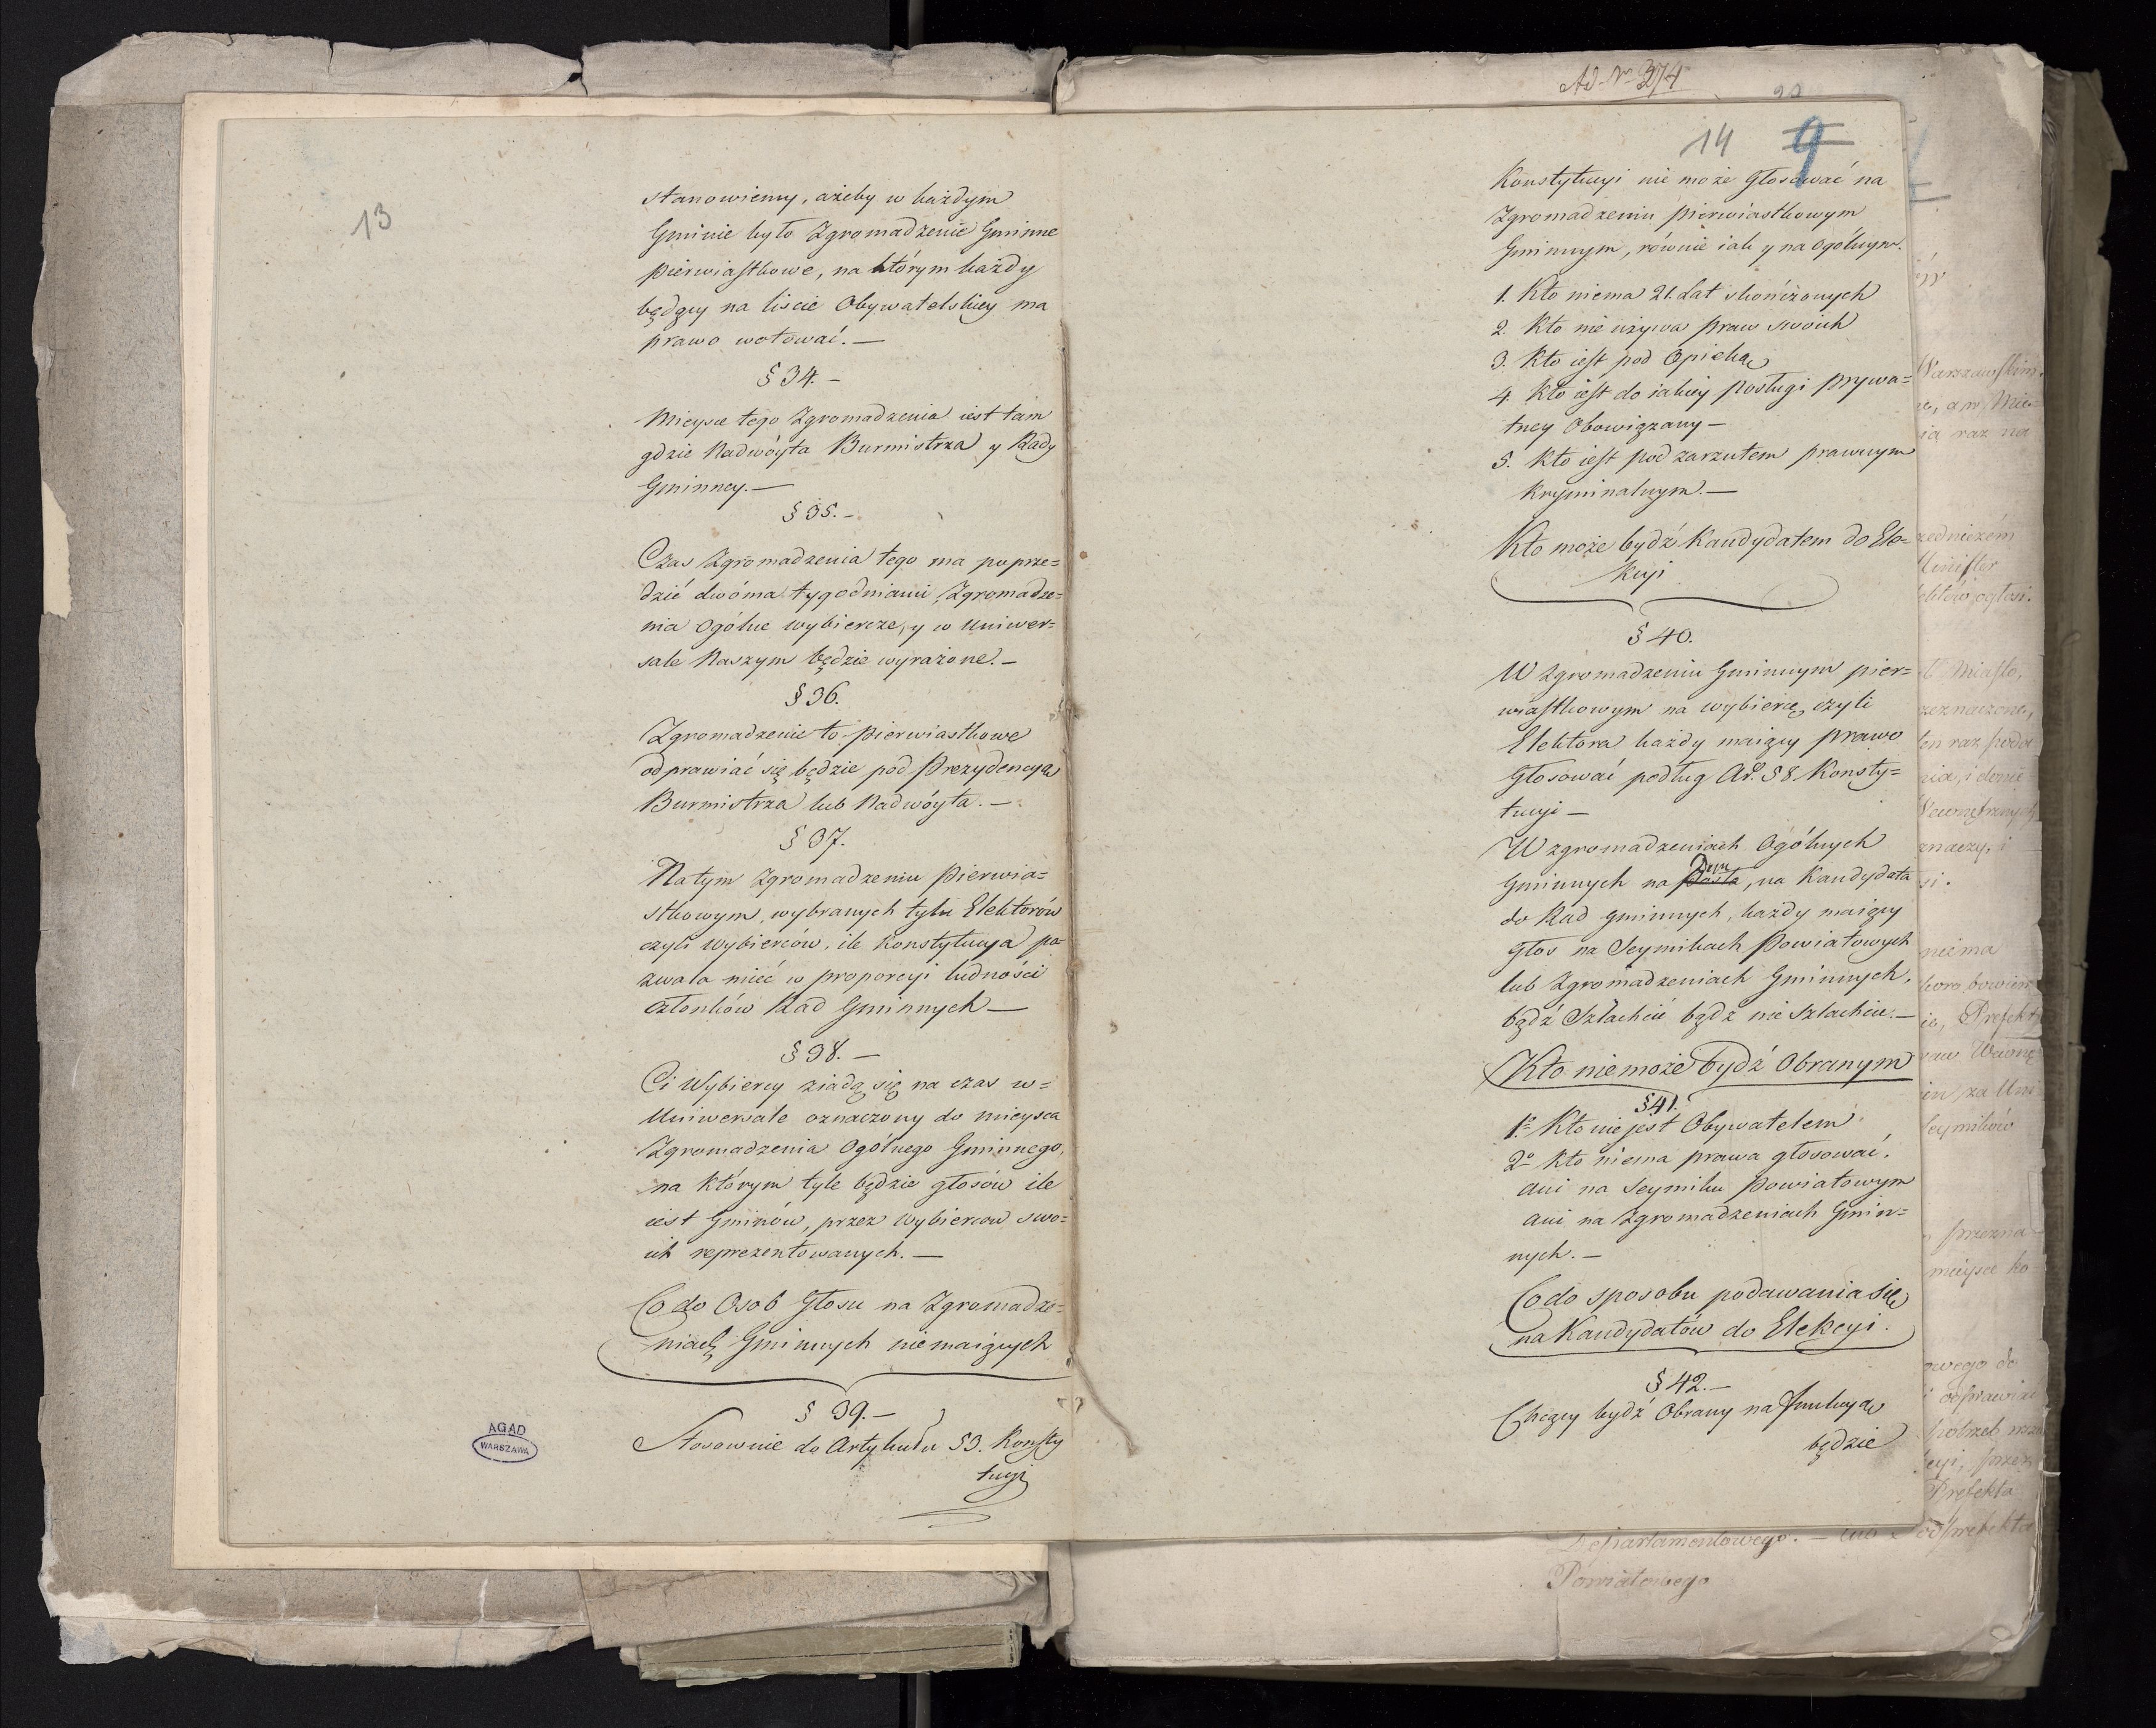 13
stanowiemy, ażeby w każdym
Gminie było Zgromadzenie Gminne
pierwiastkowe, na którym każdy
będący na liscie Obywatelskiey ma
prawo wotować. —
§ 34. –
Mieysce tego Zgromadzenia iest tam
gdzie Nadwóyta Burmistrza y Rady
Gminney. —
§ 35. –
Czas Zgromadzenia tego ma poprze=
dzić dwóma tygodniami Zgromadze=
nia Ogólne wybiercze, y w Uniwer=
sale Naszym będzie wyrażone. –
§ 36.
Zgromadzenie to pierwiastkowe
odprawiać się będzie pod Prezydencyą
Burmistrza lub Nadwóyta. —
§ 37.
Natym Zgromadzeniu Pierwia=
stkowym, wybranych tylu Elektorów
czyli Wybierców, ile Konstytucya po=
zwala mieć w proporcyi ludności
członków Rad Gminnych —
§ 38. —
Ci Wybiercy ziadą się na czas w=
Uniwersale oznaczony do mieysca
Zgromadzenia Ogólnego Gminnego,
na którym tyle będzie głosów ile
iest Gminów, przez Wybiercow swo=
ich reprezentowanych. —
Co do Osob Głosu na Zgromadze=
niach Gminnych niemaiących
§ 39. –
Stosownie do Artykułu 53. Konsty
tucyi
AGAD
WARSZAWA
Ad Nr 374
14 9
Konstytucyi nie może Głosować na
Zgromadzeniu pierwiastkowym
Gminnym, równie iak y na Ogólnym.
1. Kto niema 21. Lat skończonych
2. Kto nie używa praw swoich
3. Kto iest pod Opieką
4. Kto iest do iakiey Posługi prywa=
tney Obowiązany —
5. Kto iest pod zarzutem prawnym
Kryminalnym. —
Kto może bydź Kandydatem do Ele=
kcyi
§ 40.
W Zgromadzeniu Gminnym pier=
wiastkowym na wybiercę czyli
Elektora każdy maiący prawo
Głosować podług Ar. 58. Konsty=
tucyi —
W zgromadzeniach Ogólnych
Gminnych na Posła, na Kandydata
do Rad gminnych, każdy maiący
Głos na Seymikach Powiatowych
lub Zgromadzeniach Gminnych,
bądź Szlachcic bądź nie Szlachcic. —
Kto niemoże bydź Obranym
§ 41.
1o Kto nie jest Obywatelem
2o Kto niema prawa głosować,
ani na Seymiku Powiatowym
ani na Zgromadzeniach Gmin=
nych. –
Co do sposobu podawania się
na Kandydatów do Elekcyi.
§ 42. –
Chcący bydź Obrany na Funkcyą
będzie
Departamentowego. — lub Podprefekta
Powiatowego